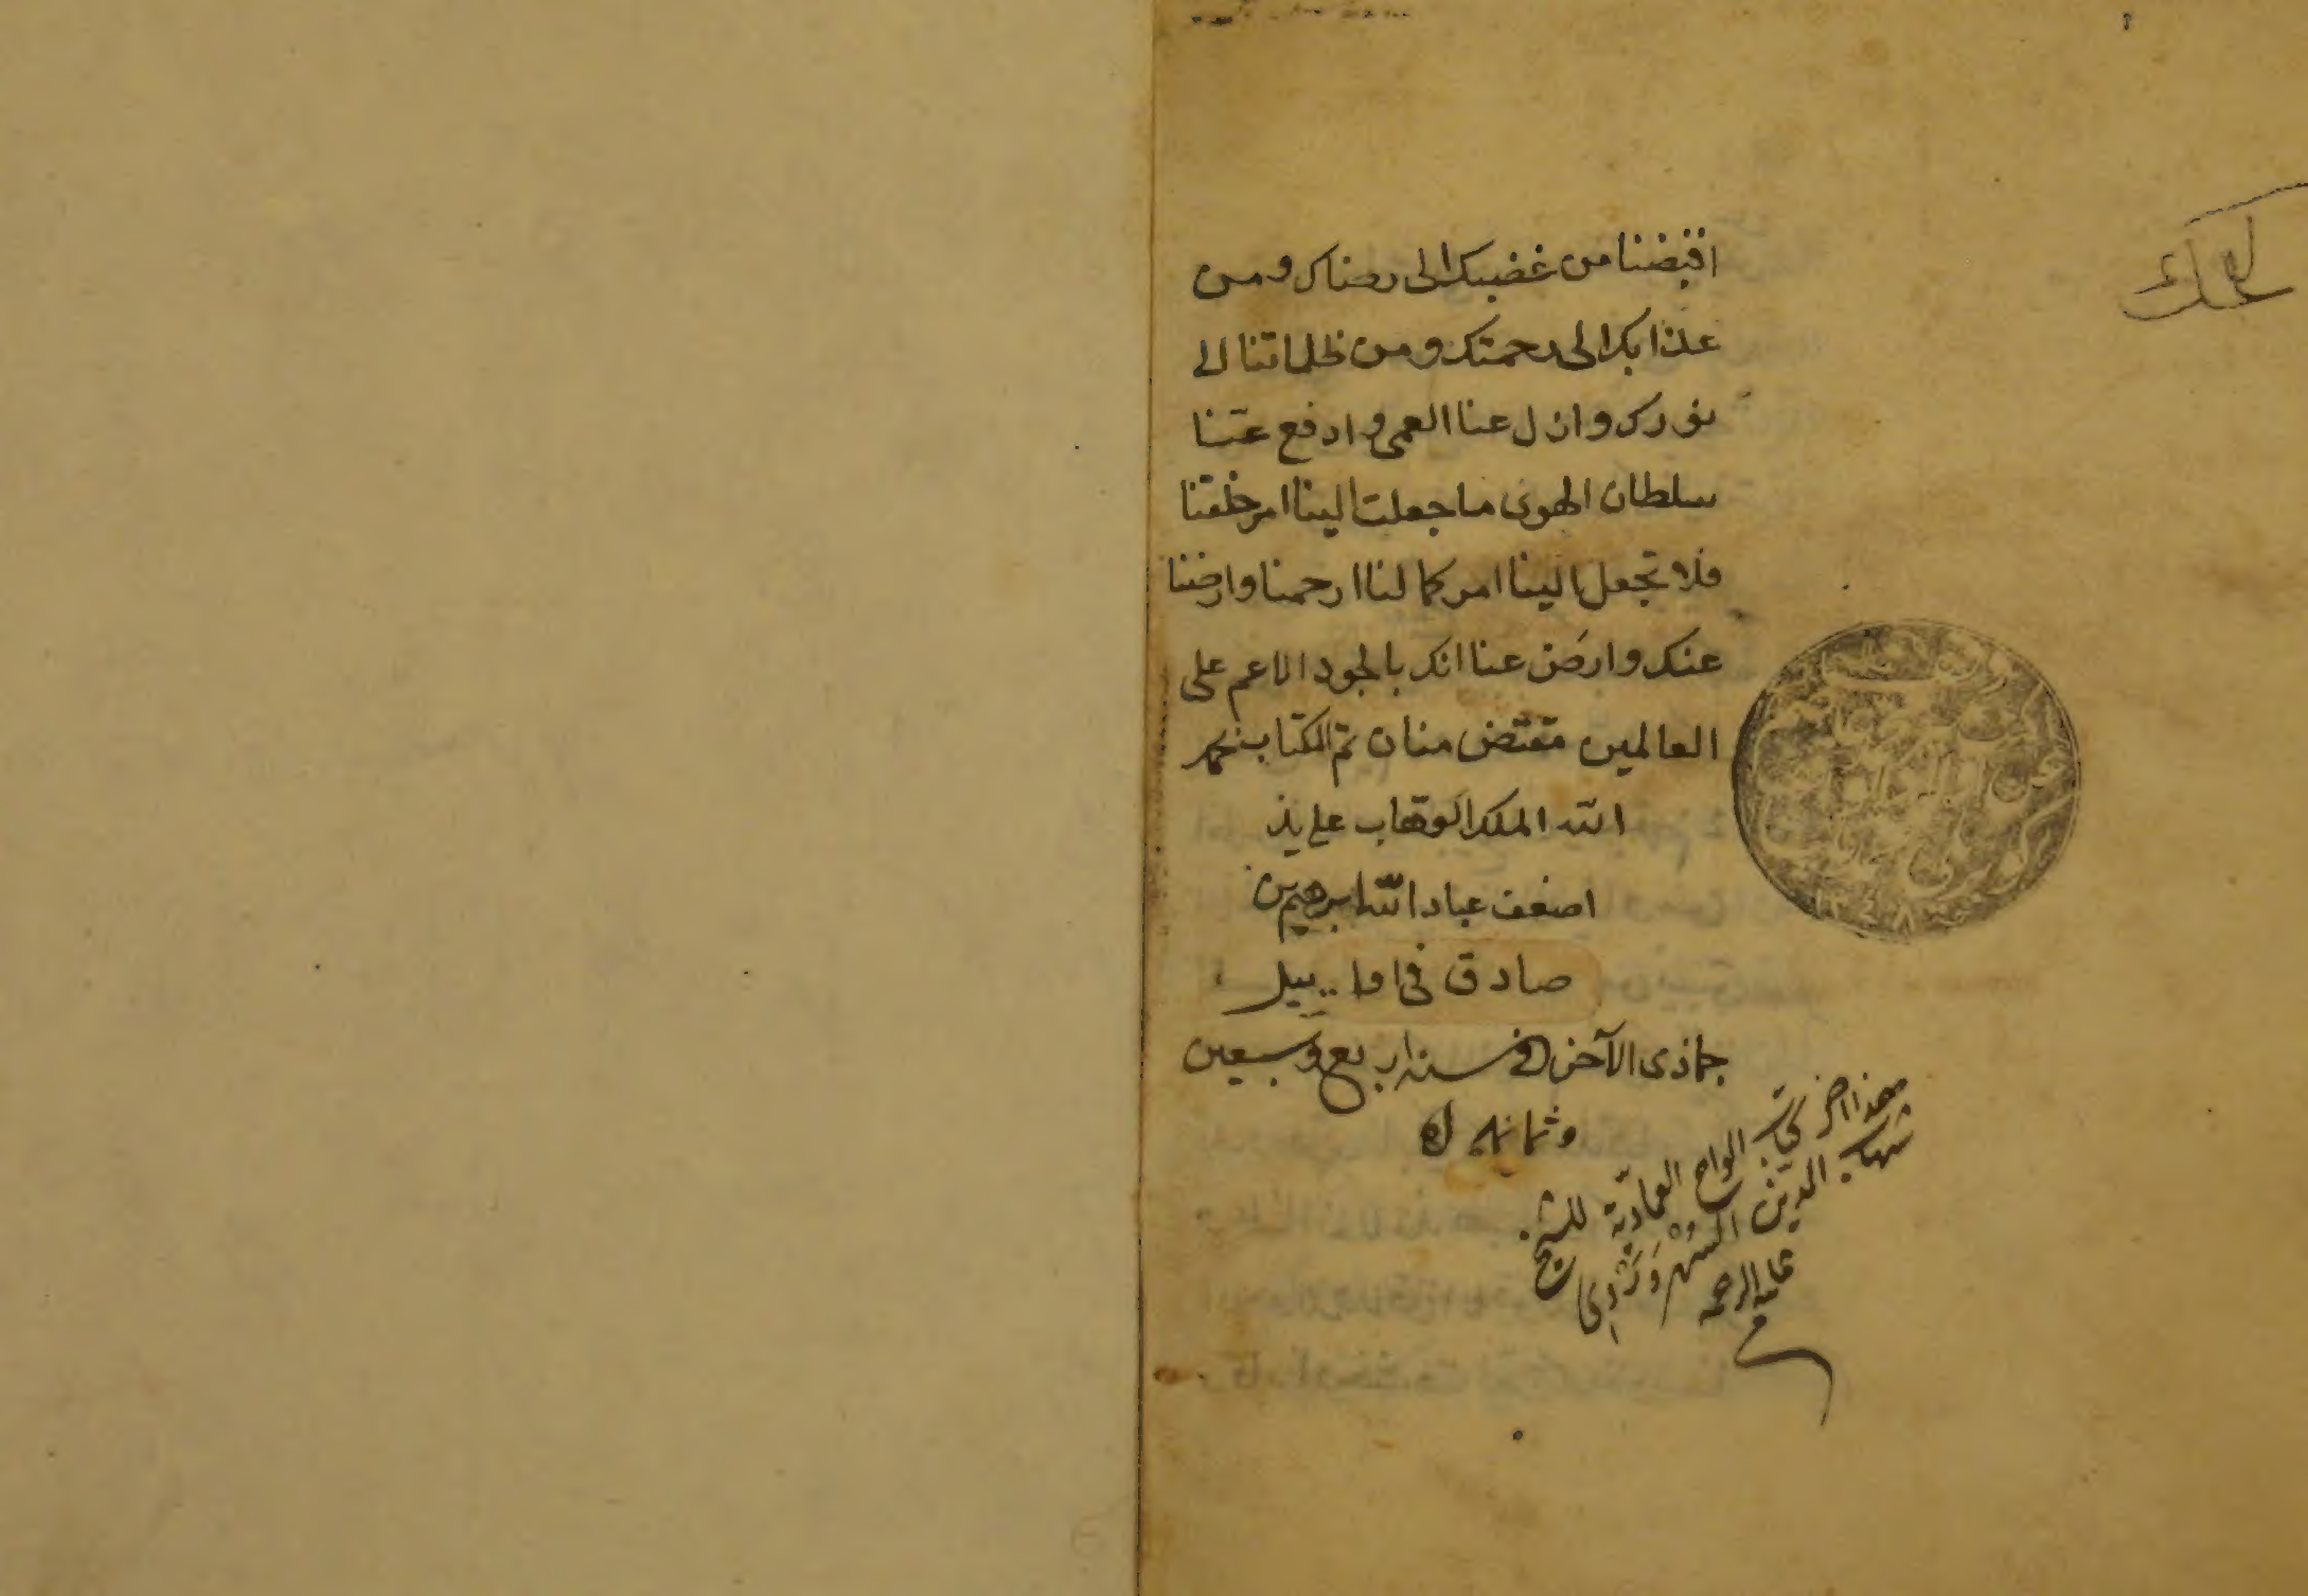 اقبضنا من غضبك الى رضاك ومن
عذابك الى رحمتك ومن ظلماتنا الى
نورك وازل عنا العمى وادفع عنا
سلطان الهوى ما جعلت الينا امر خلقتنا
فلا تجعل الينا امر كمالنا ارحمنا وارضنا
عنك وارض عنا انك بالجود الاعم على
العالمين منان تم الكتاب
الله الملك الوهاب على يد
اضعف عباد الله ابرهيم بن
صادق فى اوا..ييل
جمادى الآخر سنه اربع وسبعين
وثمانمايه
هذا اخر كتاب الواح العماديّة للشيخ
شهاب الدين السُّهْرَوَرْدِى
عليه الرحمه